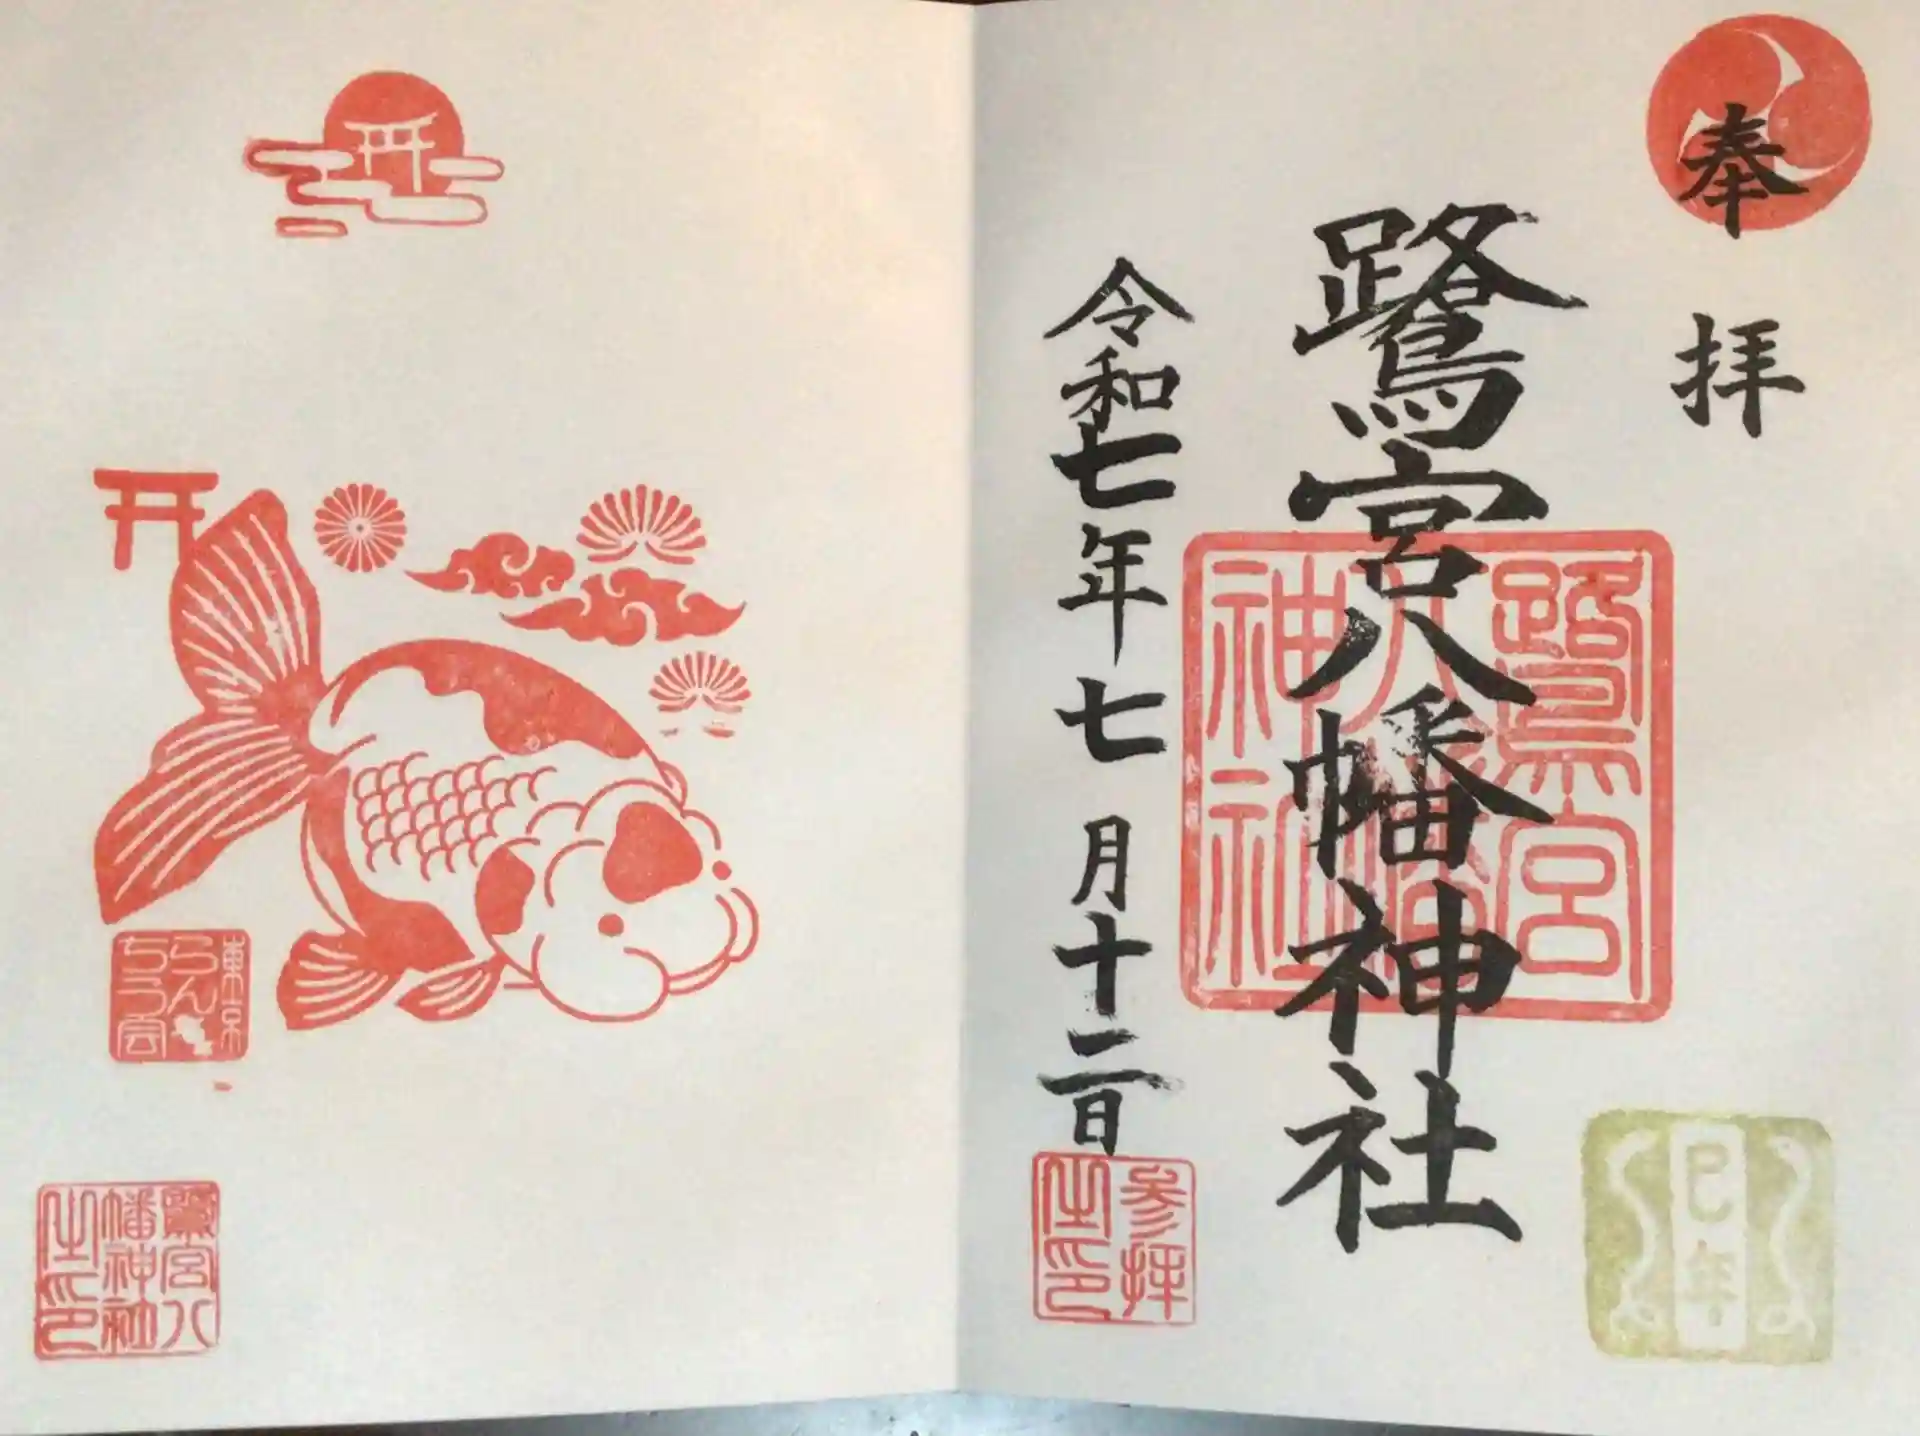 奉拝
鷺宮八幡神社
令和七年七月十二日
鷺宮
八幡
神社
参拝
之印
巳年
東京
らん
ちう会
鷺宮八
幡神社
之印